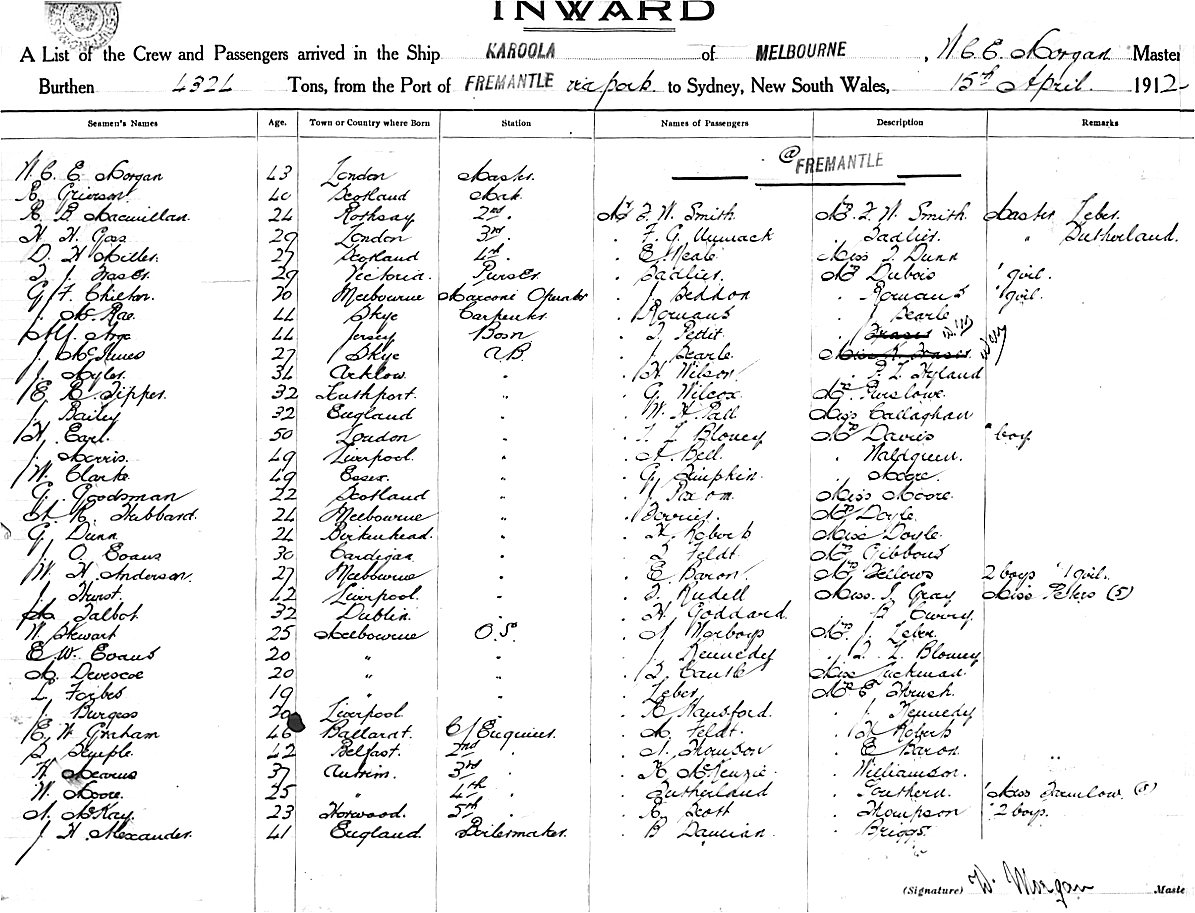 INWARD
A List of the Crew and Passengers arrived in the Ship KAROOLA of MELBOURNE, W. C. E. Morgan Master
Burthen 4324 Tons, from the Port of FREMANTLE via ports to Sydney, New South Wales, 15th April 1912
Seamen's Names Age. Town or Country where Born Station Names of Passengers Description Remarks
@ FREMANTLE
W. C. E. Morgan 43 London Master
R. Grierson 40 Scotland Mate
R. B. Macmillan 24 Rothsay 2nd . Mr F. W. Smith Mrs F. W. Smith Master Zeber
H. H. Goss 29 London 3rd . . F. G. Unmack . Sadlier " Sutherland
D. H. Miller 27 Scotland 4th . . E. Neale Miss I. Dunn
T. J. Fraser 29 Victoria Purser . Sadlier Mrs Dubois 1 girl
G. F. Chilton 20 Melbourne Marconi Operator . J. Beddon . Romans 1 girl
J. McRae 44 Skye Carpenter . Romans . J. Searle
44 Jersey Bosn . T. Pettit . Fraser
J. McInnes 27 Skye A.B. . J. Searle Miss Fraser
J. Myles 34 Arklow . . H. Wilson . P. L. Hyland
E. R. Tipper 32 . . G. Wilcox Mrs Purslowe
J. Bailey 32 England . . W. H. Pall Miss Callaghan
H. Earl 50 London . . Blomey Mrs Davies " boy
J. Morris 49 Liverpool . . A. Bell . Waldgreen
W. Clarke 49 Essex . . G. Simpkin . Moore
G. Goodsman 22 Scotland . . J. Paxom Miss Moore
A. R. Hubbard 24 Melbourne . . Ferrier Mrs Doyle
G. Dunn 24 Birkenhead . . H. Roberts Miss Doyle
J. O. Evans 30 Cardigan . . T. Feldt Mrs Gibbons
W. H. Anderson 27 Melbourne . . E. Baron Mrs Fellows 2 boys 1 girl
J. Hurst 42 Liverpool . . T. Rudell Miss I. Gray Miss Peters (5)
Talbot 32 Dublin . . H. Goddard . B. Curry
W. Stewart 25 Melbourne O.S. . A. Warboys Mrs J. Zeber
E. W. Evans 20 " . . J. Kennedy . Blomey
A. Devescoe 20 " . . T. Cantle Miss Luckman
L. Forbes 19 " . . Zeber Mrs E. Thrush
J. Burgess 20 Liverpool . . R. Hansford . J. Kennedy
E. W. Graham 46 Ballarat C/ Enquiries . A. Feldt . H. Roberts
S. Temple 42 Belfast 2nd . . A. Thomson . E. Baron
H. Mearns 37 Antrim 3rd . . R. McKenzie . Williamson
W. Moore 25 " 4th . . Sutherland . Southern (5)
A. McKay 23 Norwood 5th . . R. Scott . Thompson 2 boys
J. H. Alexander 41 England Boilermaker . B. Damian . Briggs
(Signature) W. Morgan Maste